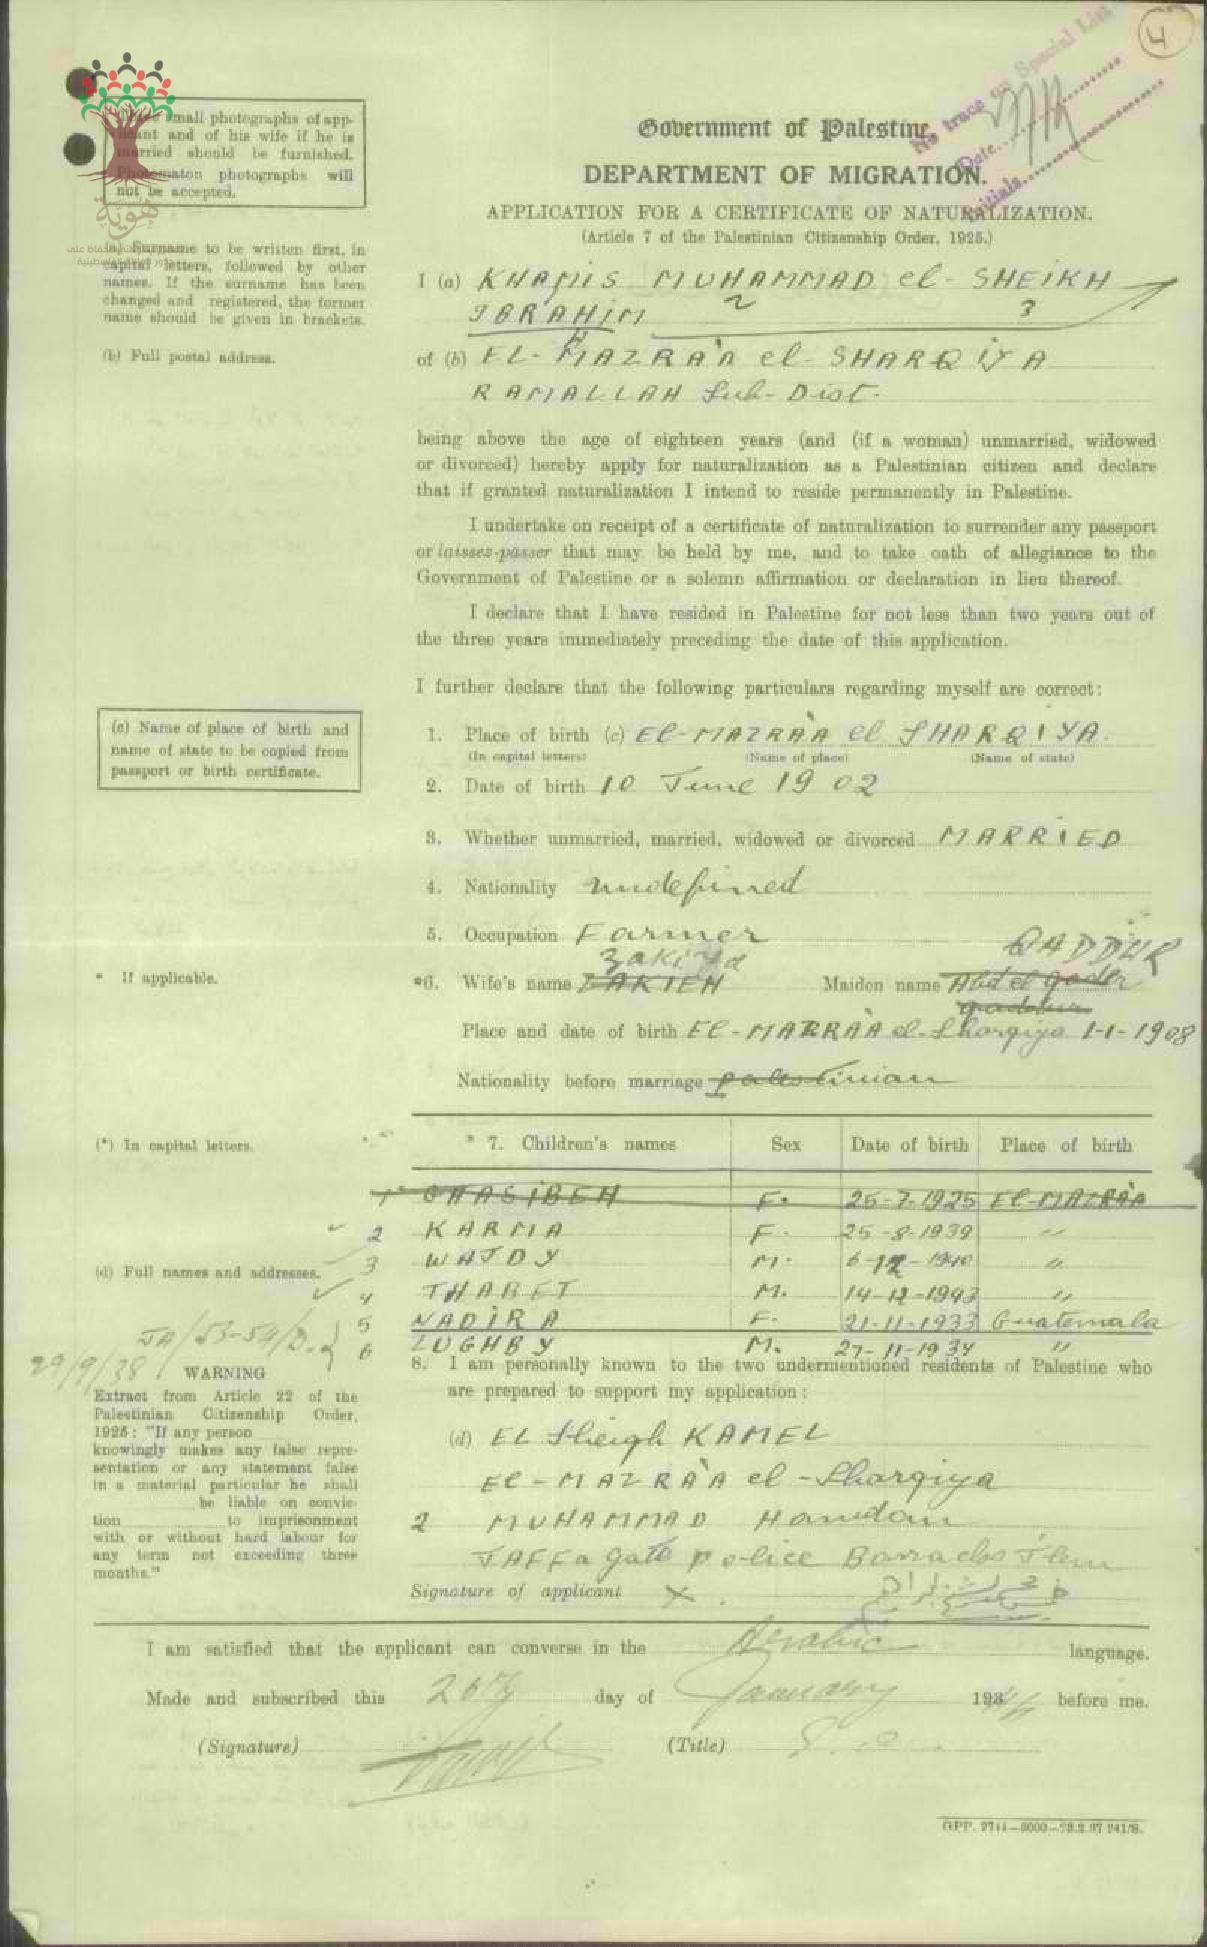 4
No trace on Special List
Date
Initials
Government of Palestine.
DEPARTMENT OF MIGRATION.
APPLICATION FOR A CERTIFICATE OF NATURALIZATION.
(Article 7 of the Palestinian Citizenship Order, 1925.)
small photographs of app-
licant and of his wife if he is
married should be furnished.
Photomaton photographs will
not be accepted.
هوية
(a) Surname to be written first, in
capital letters, followed by other
names. If the surname has been
changed and registered, the former
name should be given in brackets.
(b) Full postal address.
I (a) KHAMIS MUHAMMAD el-SHEIKH
IBRAHIM 2 3
of (b) EL-MAZRA'A el-SHARQIYA
RAMALLAH Sub-Dist.
being above the age of eighteen years (and (if a woman) unmarried, widowed
or divorced) hereby apply for naturalization as a Palestinian citizen and declare
that if granted naturalization I intend to reside permanently in Palestine.
I undertake on receipt of a certificate of naturalization to surrender any passport
or laisses-passer that may be held by me, and to take oath of allegiance to the
Government of Palestine or a solemn affirmation or declaration in lieu thereof.
I declare that I have resided in Palestine for not less than two years out of
the three years immediately preceding the date of this application.
I further declare that the following particulars regarding myself are correct:
(c) Name of place of birth and
name of state to be copied from
passport or birth certificate.
1. Place of birth (c) El-MAZRA'A el SHARQIYA.
(In capital letters) (Name of place) (Name of state)
2. Date of birth 10 June 1902
3. Whether unmarried, married, widowed or divorced MARRIED
4. Nationality undefined
5. Occupation Farmer
QADDUR
zakiya
* If applicable.
*6. Wife's name ZAKIEH Maiden name Abd el qader
qaddur
Place and date of birth El-MAZRA'A el-Sharqiya 1-1-1908
Nationality before marriage palestinian
(*) In capital letters.
* 7. Children's names Sex Date of birth Place of birth
1 GHASIBEH F. 25-7-1925 El-MAZRA'A
2 KARMA F. 25-8-1939 "
3 WAJDY M. 6-12-1940 "
(d) Full names and addresses.
4 THABET M. 14-12-1943 "
5 NADIRA F. 21-11-1933 Guatemala
6 LUGHBY M. 27-11-1934 "
JA/53-54/D.
29/9/38
8. I am personally known to the two undermentioned residents of Palestine who
are prepared to support my application:
WARNING
Extract from Article 22 of the
Palestinian Citizenship Order,
1925: "If any person
knowingly makes any false repre-
sentation or any statement false
in a material particular he shall
be liable on convic-
tion to imprisonment
with or without hard labour for
any term not exceeding three
months."
(d) EL Sheigh KAMEL
El-MAZRA'A el-Sharqiya
2 MUHAMMAD Hamdan
JAFFa gate police Barracks J'lem
Signature of applicant X.
I am satisfied that the applicant can converse in the Arabic language.
Made and subscribed this 26th day of January 1944 before me.
(Signature) (Title)
GPP. 2744—5000—23.2.37 241/S.